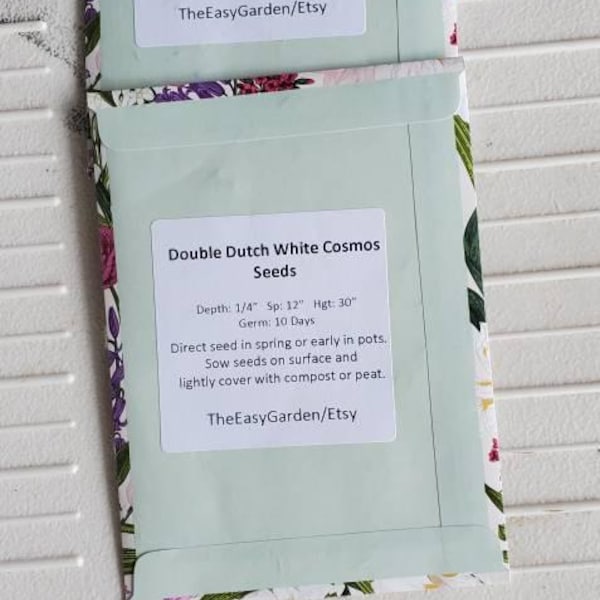 TheEasyGarden/Etsy
Double Dutch White Cosmos
Seeds
Depth: 1/4" Sp: 12" Hgt: 30"
Germ: 10 Days
Direct seed in spring or early in pots.
Sow seeds on surface and
lightly cover with compost or peat.
TheEasyGarden/Etsy